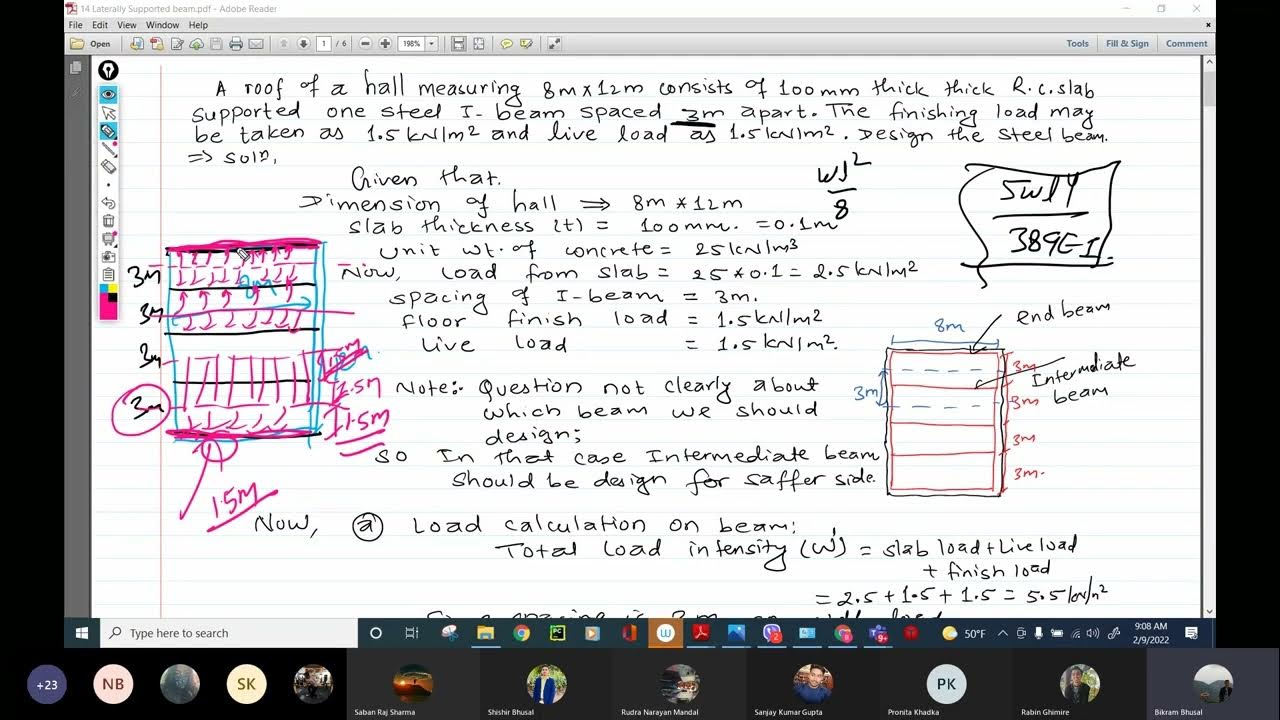 14 Laterally Supported beam.pdf - Adobe Reader
File Edit View Window Help
Open 1 / 6 198% Tools Fill & Sign Comment
A roof of a hall measuring 8m x 12m consists of 100mm thick thick R.c.slab
supported one steel I-beam spaced 3m apart. The finishing load may
be taken as 1.5 kN/m2 and live load as 1.5 kN/m2. Design the steel beam.
=> soln,
Given that.
Dimension of hall => 8m * 12m
slab thickness (t) = 100mm. = 0.1m
unit wt. of concrete = 25 kN/m3
Now, Load from slab = 25 * 0.1 = 2.5 kN/m2
spacing of I-beam = 3m.
floor finish load = 1.5 kN/m2
Live load = 1.5 kN/m2.
Note:- Question not clearly about
which beam we should
design;
so In that case Intermediate beam
should be design for saffer side.
Now, (a) Load calculation on beam:
Total load intensity (w') = slab load + Live load
+ finish load
= 2.5 + 1.5 + 1.5 = 5.5 kN/m2
wl2
8
5wl4
384EI
3m
3m
3m
3m
8m
1.5m
1.5m
1.5m
8m
end beam
Intermediate
beam
3m
3m
3m
3m
3m.
Type here to search
50°F
9:08 AM
2/9/2022
+23 NB SK PK
Saban Raj Sharma Shishir Bhusal Rudra Narayan Mandal Sanjay Kumar Gupta Pronita Khadka Rabin Ghimire Bikram Bhusal